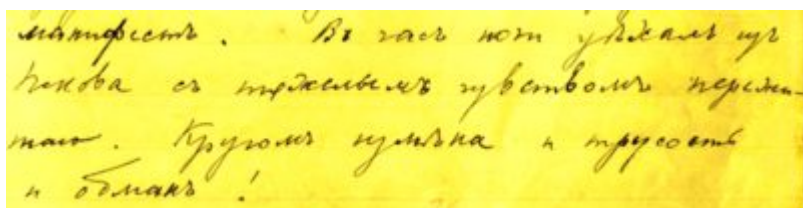 манифестъ. Въ часъ ночи уѣхалъ изъ
Пскова съ тяжелымъ чувствомъ пережи-
таго. Кругомъ измѣна и трусость
и обманъ!